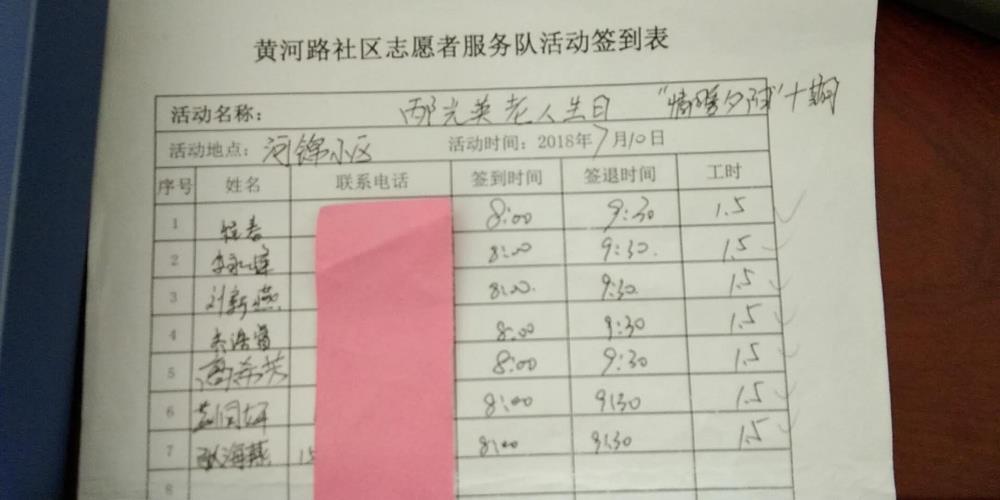 黄河路社区志愿者服务队活动签到表
活动名称： 邴光英老人生日 "情暖夕阳"十期
活动地点：河锦小区 活动时间：2018年7月10日
序号 姓名 联系电话 签到时间 签退时间 工时
1 8:00 9:30 1.5
2 8:00 9:30. 1.5
3 刘新燕 8:00. 9:30. 1.5
4 8:00 9:30 1.5
5 高希芳 8:00 9:30 1.5
6 8:00 9:30 1.5
7 张海燕 15 8:00 9:30 1.5
8